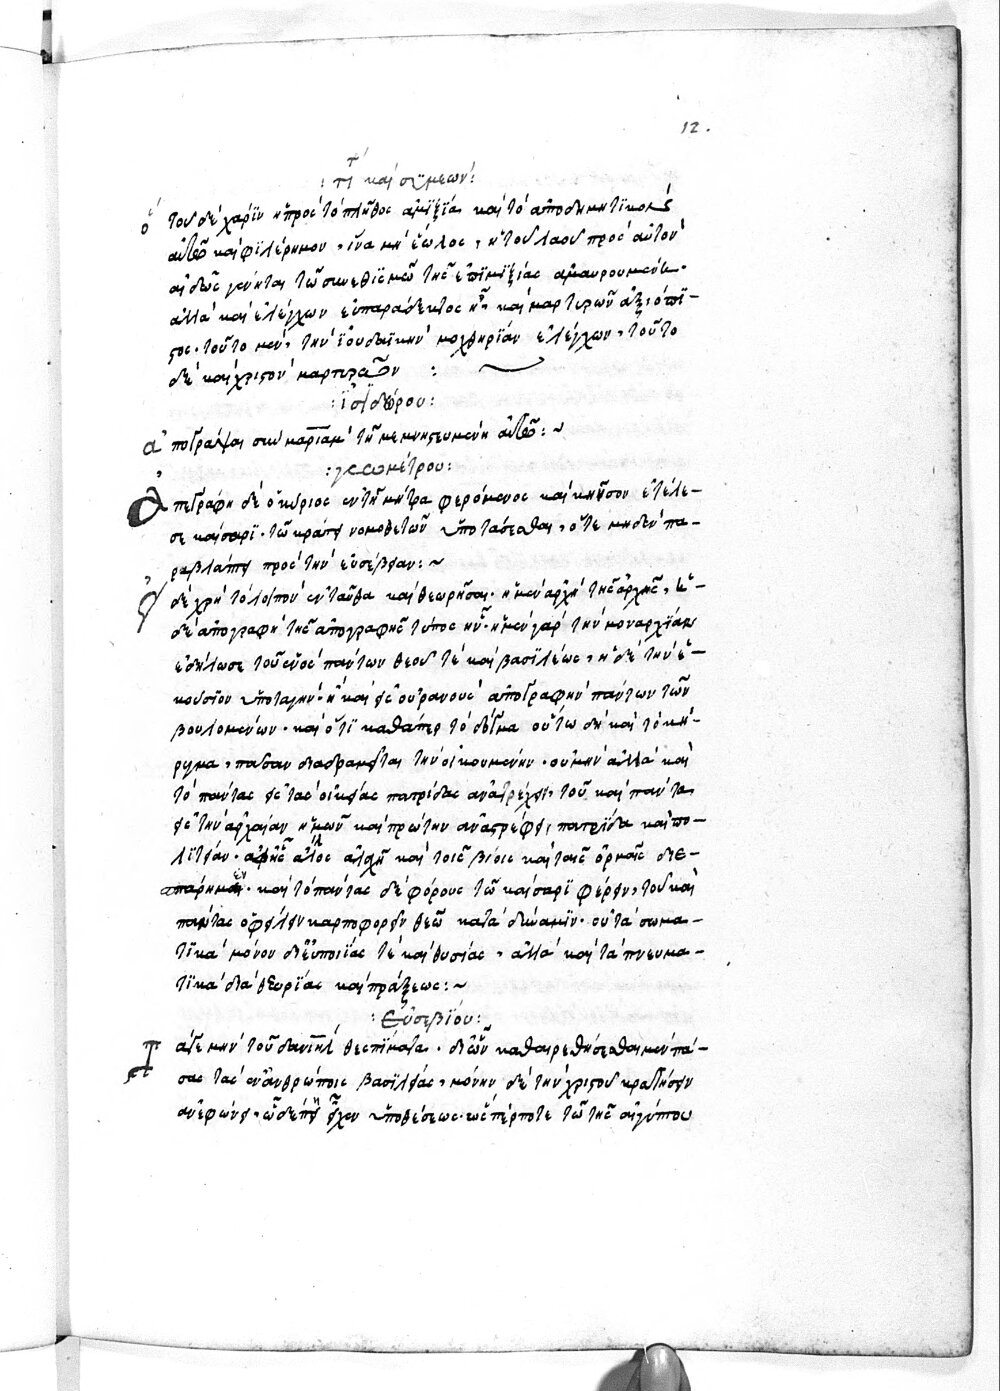 12.
καὶ συμεών:
τούδε χάριν ἡ πρὸς τὸ πλῆθος ἀμιξία καὶ τὸ ἀποδημητικὸν
αὐτοῦ καὶ φιλέρημον, ἵνα μὴ ἕωλος, ἡ τοῦ λαοῦ πρὸς αὐτὸν
αἰδὼς γένηται τῶ συνεθισμῶ τῆς ἐπιμιξίας ἀμαυρουμένη.
ἀλλὰ καὶ ἐλέγχων εὐπαράδεκτος ἦ, καὶ μαρτυρῶν ἀξιόπι-
στος. τοῦτο μὲν, τὴν ἰουδαϊκὴν μοχθηρίαν ἐλέγχων, τοῦτο
δὲ καὶ χριστὸν μαρτυρῶν :
:ἰσιδώρου:
ἀπογράψαι σὺν μαριὰμ τῆ μεμνηστευμένη αὐτῶ:~
:γεωμέτρου:
Ἀπεγράφη δὲ ὁ κύριος ἐν τῆ μήτρα φερόμενος καὶ κῆνσον ἐτέλε-
σε καίσαρι. τῶ κράτει νομοθετῶν ὑποτάσσεσθαι, ὅτε μηδὲν πα-
ραβλάπτει πρὸς τὴν εὐσέβειαν:~
δὲ χρὴ τὸ λοιπὸν ἐνταῦθα καὶ θεωρῆσαι. ἡ μὲν ἀρχὴ τῆς ἀρχῆς, ἡ
δὲ ἀπογραφὴ τῆς ἀπογραφῆς τύπος ἦν. ἡ μὲν γὰρ τὴν μοναρχίαν
ἐδήλωσε τοῦ ἑνὸς πάντων θεοῦ τὲ καὶ βασιλέως, ἡ δὲ τὴν ἑ-
κούσιον ὑποταγὴν. ἢ καὶ εἰς οὐρανοὺς ἀπογραφὴν πάντων τῶν
βουλομένων. καὶ ὅτι καθάπερ τὸ δόγμα οὕτω δὴ καὶ τὸ κή-
ρυγμα, πᾶσαν διαδραμεῖται τὴν οἰκουμένην. οὐ μὴν ἀλλὰ καὶ
τὸ πάντας εἰς τὰς οἰκείας πατρίδας ἀνατρέχειν, τοῦ καὶ πάντας
εἰς τὴν ἀρχαίαν ἡμῶν καὶ πρώτην ἀναστρέφειν πατρίδα καὶ πο-
λιτείαν. ἀφ' ἧς
καὶ τοῖς βίοις καὶ ταῖς ὁρμαῖς
καὶ τὸ πάντας δὲ φόρους τῶ καίσαρι φέρειν, τοῦ καὶ
πάντας ὀφείλειν καρποφορεῖν θεῶ κατὰ δύναμιν. οὐ τὰ σωμα-
τικὰ μόνον δι' εὐποιίας τὲ καὶ θυσίας, ἀλλὰ καὶ τὰ πνευμα-
τικὰ διὰ θεωρίας καὶ πράξεως:~
:Εὐσεβίου:
Τά γε μὴν τοῦ δανιὴλ θεσπίσματα. δι' ὧν καθαιρεθήσεσθαι μὲν πά-
σας τὰς ἐν ἀνθρώποις βασιλείας, μόνην δὲ τὴν χριστοῦ κρατήσειν
ἀνεφώνει, ὧδέ πη εἶχεν ὑποθέσεως. ὥσπέρ ποτε τῶ τῆς αἰγύπτου